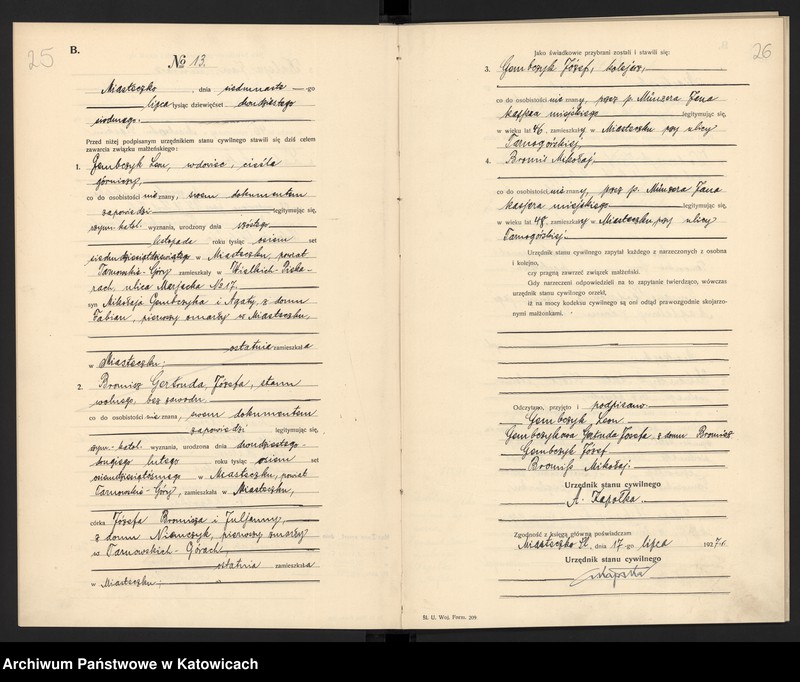 25
B.
№ 13.
Miasteczko, dnia siedmnasto -go
lipca tysiąc dziewięćset dwudziestego
siódmego.
Przed niżej podpisanym urzędnikiem stanu cywilnego stawili się dziś celem
zawarcia związku małżeńskiego:
1. Gembczyk Leon, wdowiec, cieśla
górniczy,
co do osobistości nie znany, swem dokumentem
zapowiedzi legitymując się,
rzym. katol. wyznania, urodzony dnia szóstego
listopada roku tysiąc osiem set
siedmdziesiątdziewiątego w Miasteczku, powiat
Tarnowskie-Góry zamieszkały w Wielkich Pieka-
rach, ulica Marjacka No 17.
syn Mikołaja Gembczyka i Agaty, z domu
Fabian, pierwszy zmarły w Miasteczku,
ostatnia zamieszkała
w Miasteczku;
2. Bromisz Gertruda, Józefa, stanu
wolnego, bez zawodu
co do osobistości nie znana, swem dokumentem
zapowiedzi legitymując się,
rzym.-katol. wyznania, urodzona dnia dwudziestego
drugiego lutego roku tysiąc osiem set
w Miasteczku, powiat
Tarnowskie-Góry, zamieszkała w Miasteczku,
córka Józefa Bromisza i Juljanny,
z domu Niemczyk, pierwszy zmarły
w Tarnowskich-Górach,
ostatnia zamieszkała
w Miasteczku;
26
Jako świadkowie przybrani zostali i stawili się:
3. Gembczyk Józef, kolejarz,
co do osobistości nie znany, przez p. Münzera Jana
kasjera miejskiego legitymując się,
w wieku lat 46, zamieszkały w Miasteczku przy ulicy
Tarnogórskiej,
4. Bromis Mikołaj,
co do osobistości nie znany, przez p. Münzera Jana
kasjera miejskiego legitymując się,
w wieku lat 48, zamieszkały w Miasteczku przy ulicy
Tarnogórskiej.
Urzędnik stanu cywilnego zapytał każdego z narzeczonych z osobna
i kolejno,
czy pragną zawrzeć związek małżeński.
Gdy narzeczeni odpowiedzieli na to zapytanie twierdząco, wówczas
urzędnik stanu cywilnego orzekł,
iż na mocy kodeksu cywilnego są oni odtąd prawozgodnie skojarzo-
nymi małżonkami.
Odczytano, przyjęto i podpisano
Gembczyk Leon
Gembczykowa Gertruda Józefa z domu Bromisz
Gembczyk Józef
Bromiß Mikołaj.
Urzędnik stanu cywilnego
A. Kapołka.
Zgodność z księgą główną poświadczam
Miasteczko Śl., dnia 17-go lipca 1927 r.
Urzędnik stanu cywilnego
Kapołka
Śl. U. Woj. Form. 209.
Archiwum Państwowe w Katowicach